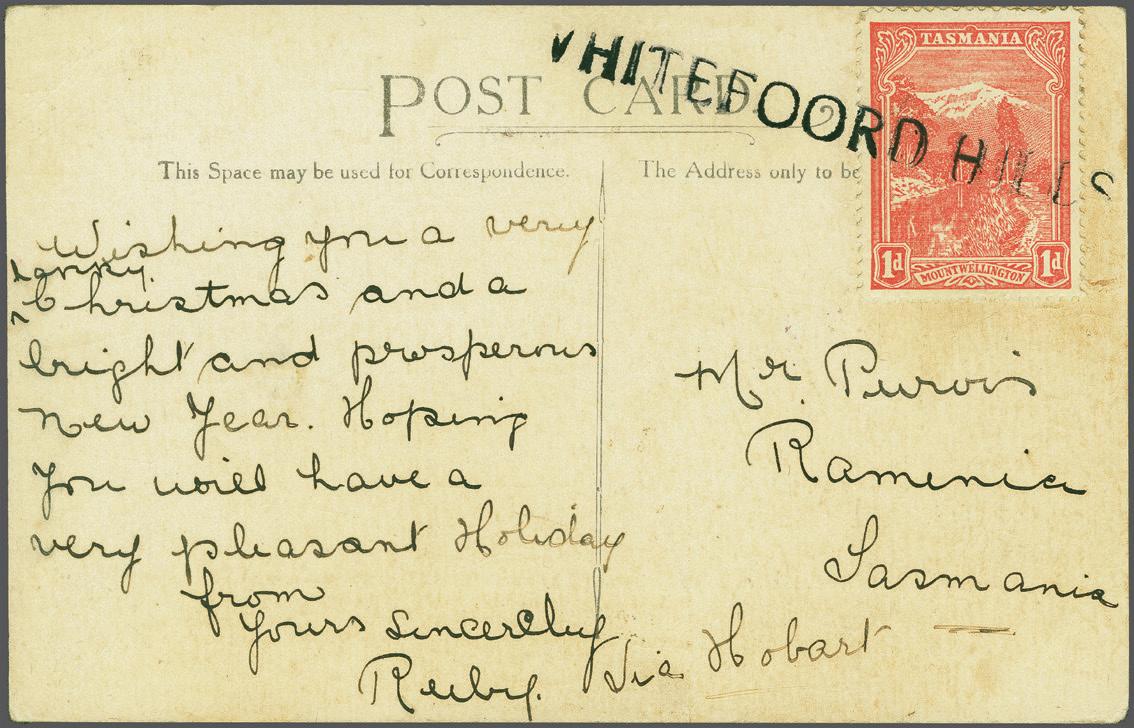 POST CARD
WHITEFOORD HILLS
TASMANIA
1d MOUNT WELLINGTON 1d
This Space may be used for Correspondence.
The Address only to be
Wishing you a very
Christmas and a
bright and prosperous
New Year. Hoping
you will have a
very pleasant Holiday
from
Yours Sincerelly
Ruby.
Mr. Purvis
Ramenia
Tasmania
Via Hobart